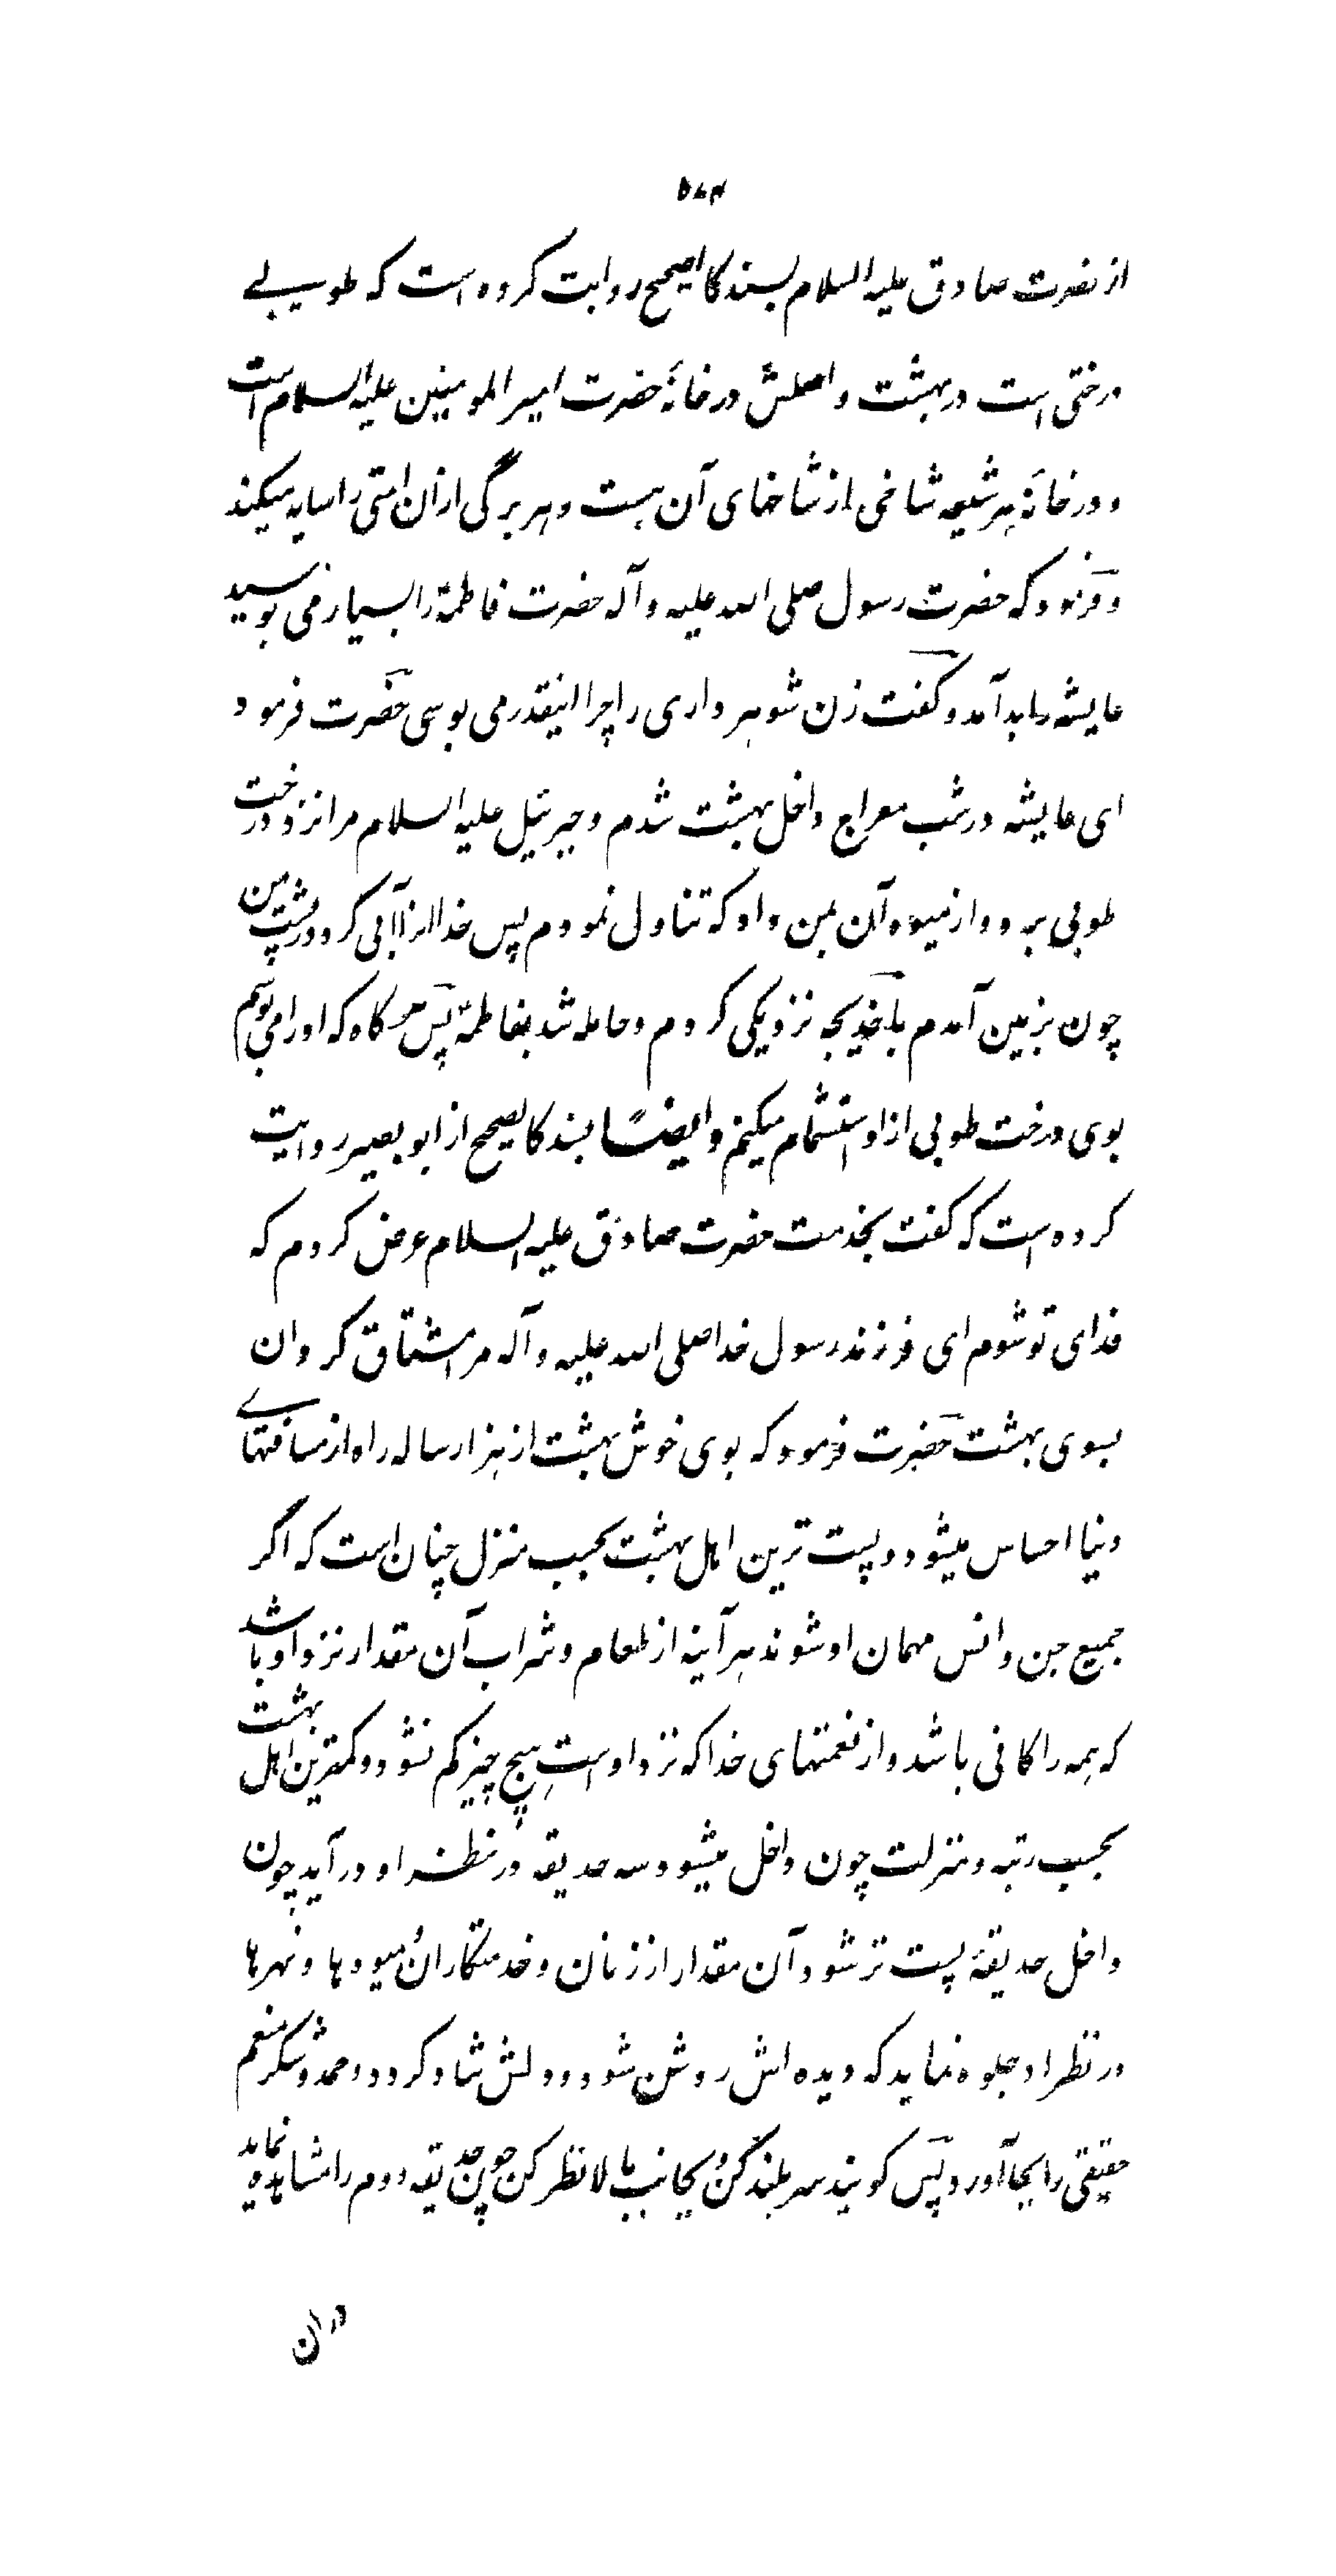 ۵۸۴
از حضرت صادق علیه السلام بسند کالصحیح روایت کرده است که طوبے
درختی است در بهشت و اصلش در خانهٔ حضرت امیر المومنین علیه السلام است
و در خانهٔ هر شیعه شاخی از شاخهای آن هست و هر برگی ازان امتی را سایه میکند
و فرمود که حضرت رسول صلی الله علیه و آله حضرت فاطمهؑ را بسیار می بوسید
عایشه را بد آمد و گفت زن شوهر داری را چرا اینقدر می بوسی حضرت فرمود
ای عایشه در شب معراج داخل بهشت شدم و جبرئیل علیه السلام مرا نزد درخت
طوبی برد و از میوه آن بمن داد که تناول نمودم پس خدا انرا آبی کرد در پشت من
چون بزمین آمدم با خدیجه نزدیکی کردم و حامله شد بفاطمهؑ پس هرگاه که او را می بوسم
بوی درخت طوبی از او استشمام میکنم و ایضًا بسند کالصحیح از ابو بصیر روایت
کرده است که گفت بخدمت حضرت صادق علیه السلام عرض کردم که
فدای تو شوم ای فرزند رسول خدا صلی الله علیه و آله مرا مشتاق گردان
بسوی بهشت حضرت فرمود که بوی خوش بهشت از هزار ساله راه از مسافتهاے
دنیا احساس میشود و پست ترین اهل بهشت بحسب منزل چنان است که اگر
جمیع جن و انس مهمان او شوند هر آینه از طعام و شراب آن مقدار نزد او باشد
که همه را کافی باشد و از نعمتهای خدا که نزد اوست هیچ چیز کم نشود و کمترین اهل بهشت
بحسب رتبه و منزلت چون داخل میشود سه حدیقه در نظر او در آید چون
داخل حدیقهٔ پست تر شود آن مقدار از زنان و خدمتکاران و میوها و نهرها
در نظر او جلوه نماید که دیده اش روشن شود و دلش شاد گردد و حمد و شکر منعم
حقیقی را بجا آورد پس گویند سر بلند کن و بجانب بالا نظر کن چون حدیقه دوم را مشاهده نماید
دران